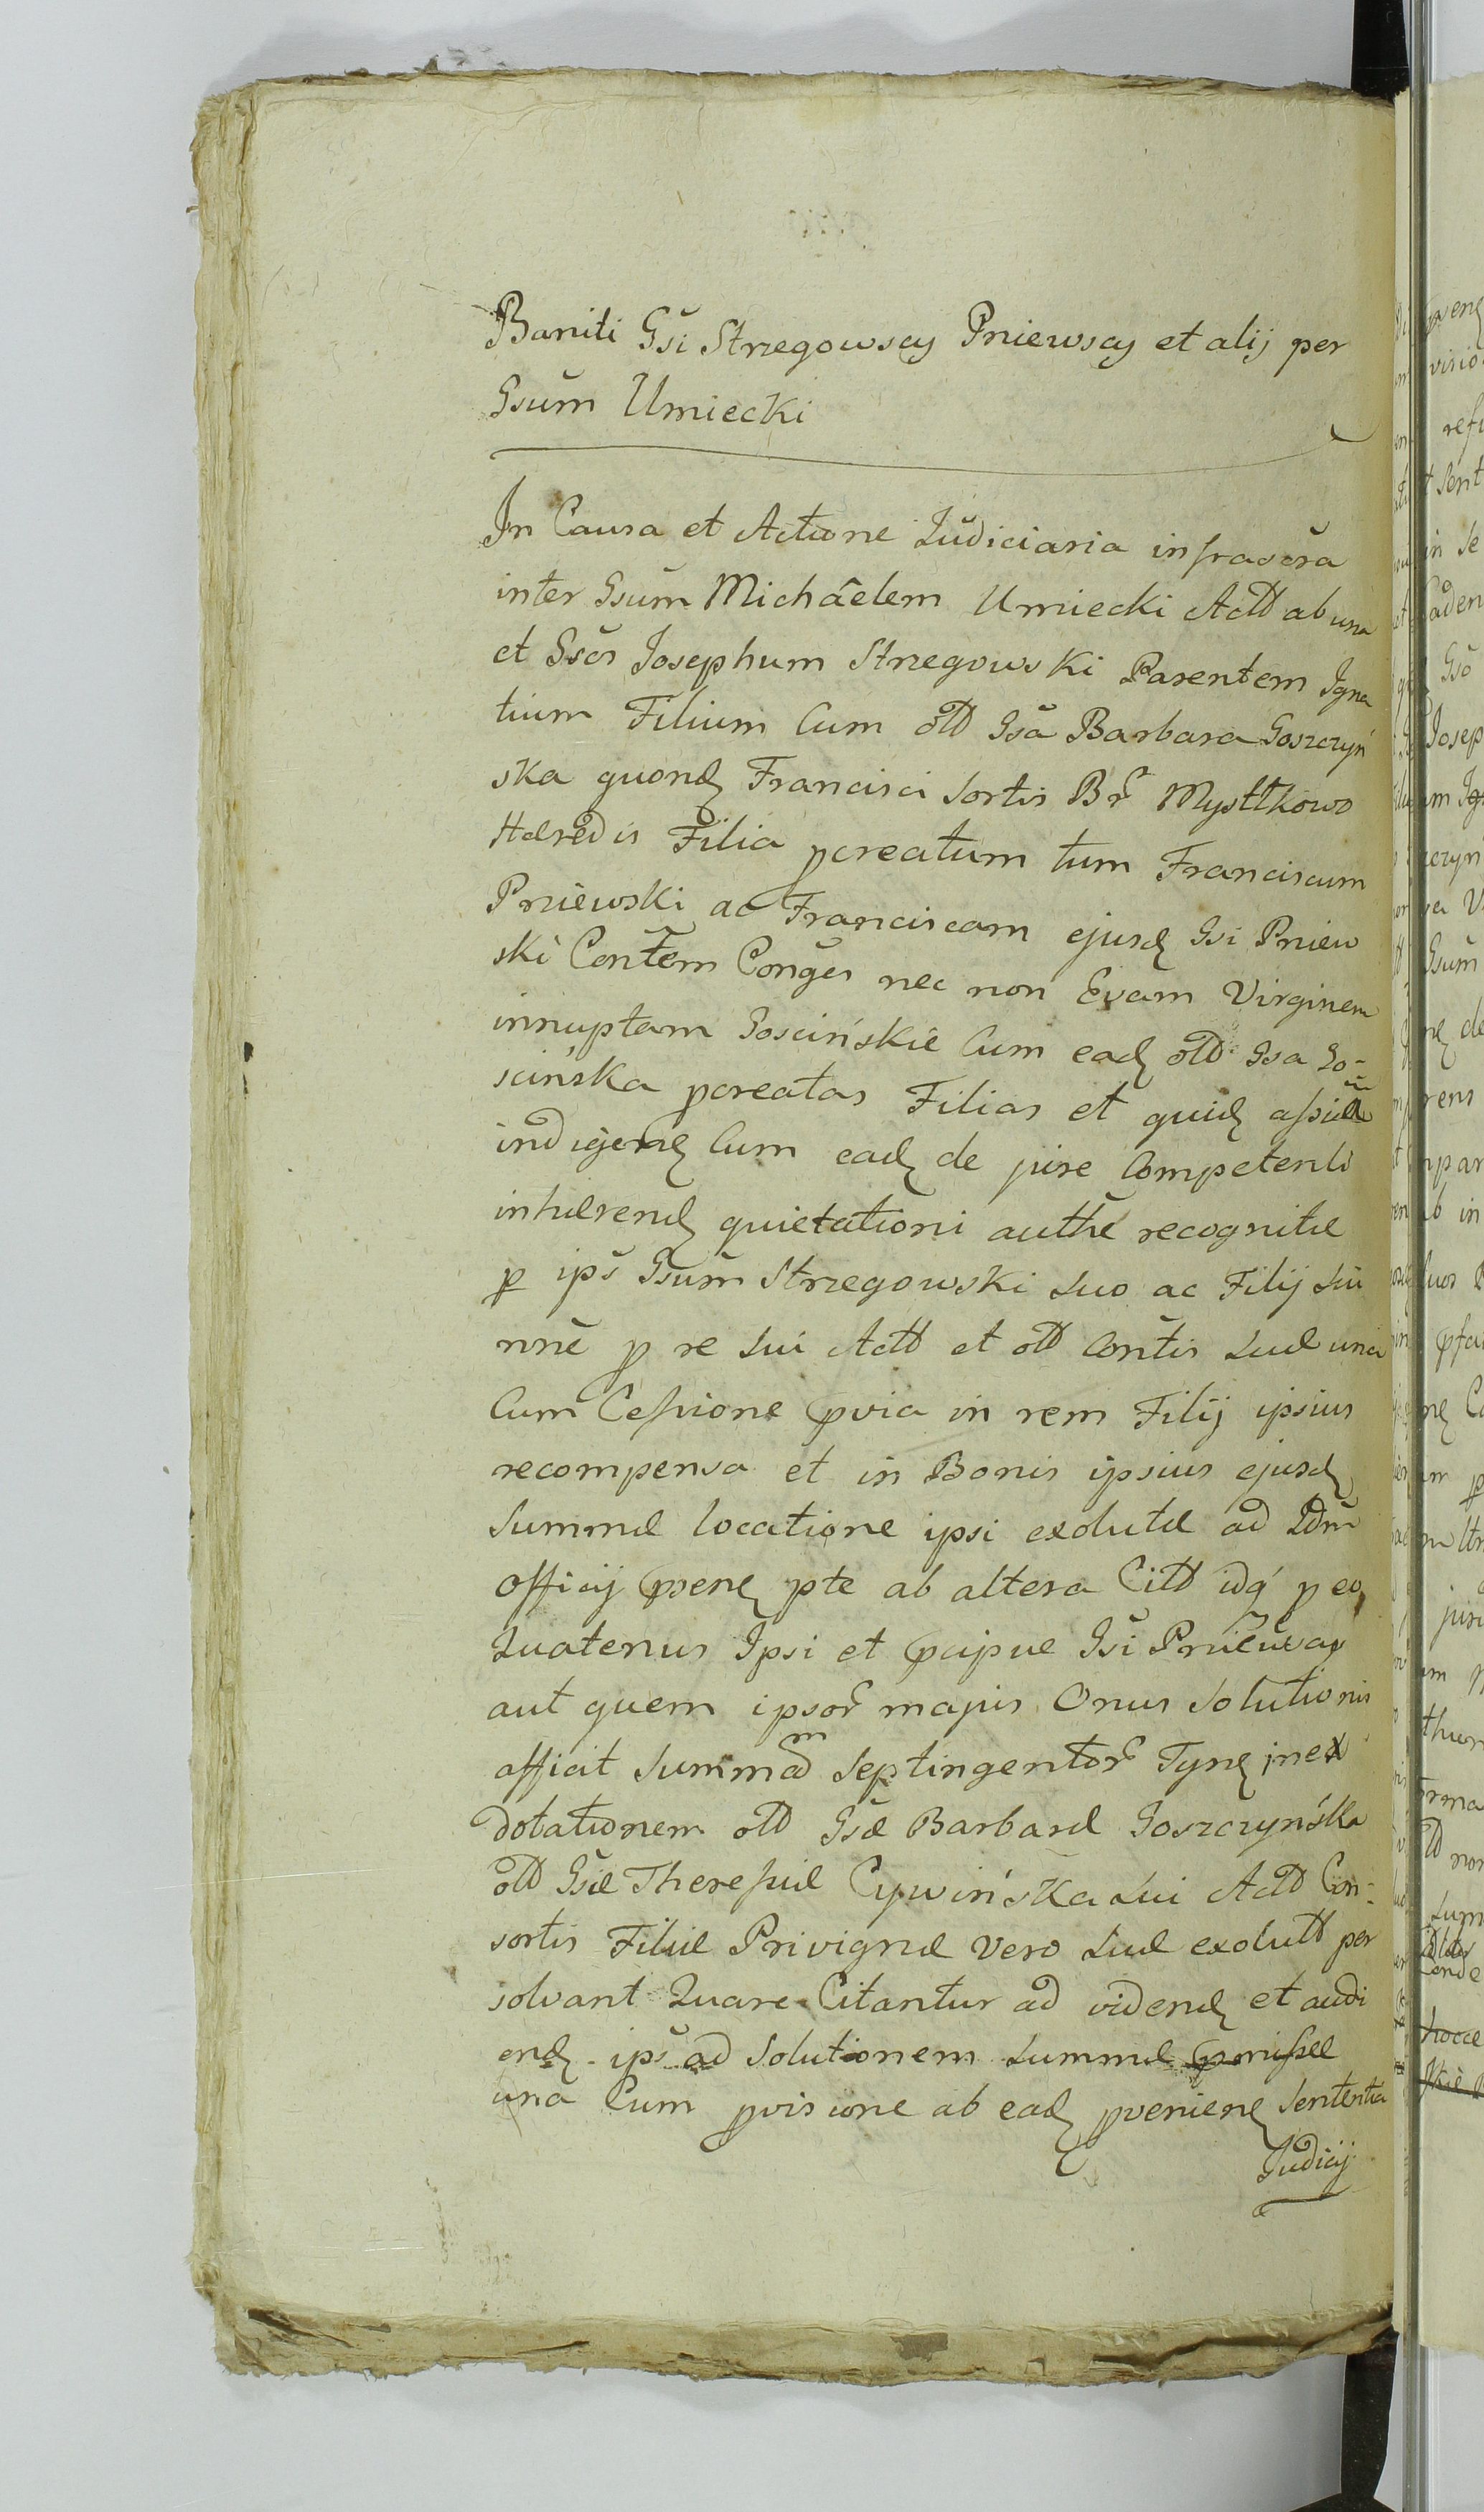 Baniti Gsi Strzegowscy Pniewscy et alij per
Gsum Umiecki
In Causa et Actione Iudiciaria infrascra
inter Gsum Michãelem Umiecki Actt ab una
et Gsos Josephum Strzegowski Parentem Igna
tium Filium Cum olt Gsa Barbara Goszczyń
ska quond Francisci Sortis Br Mysttkowo
Hæredis Filia pcreatum tum Franciscum
Pniewski ac Franciscam ejusd Gsi Pniew
ski Contem Conges nec non Evam Virginem
innuptam Goscińskie Cum ead olt Gsa Go-
scińska pcreatas Filias et quid
indigen Cum ead de jure Competenti
inhærend quietationi authe recognitæ
p ips Gsum Strzegowski suo ac Filij sui
nne p re sui Actt et olt Contis suæ una
Cum Cessione pvia in rem Filij ipsius
recompensa et in Bonis ipsius ejusd
Summæ locatione ipsi exolutæ ad
Officij psens pte ab altera Citt idq p eo,
Quatenus Ipsi et pcipue Gsi Pniewscy
aut quem ipsor magis Onus Solutionis
afficit Summam Septingentor Tynf inex
dotationem olt Gsæ Barbaræ Goszczyńska
olt Gsæ Theressiæ Cywińska sui Actt Con-
sortis Filiæ Privignæ vero suæ exolutt per
solvant Quare Citantur ad vidend et audi
end ips ad Solutionem summæ pmissæ
una Cum pvisione ab ead pveniens Sententia
Judicij